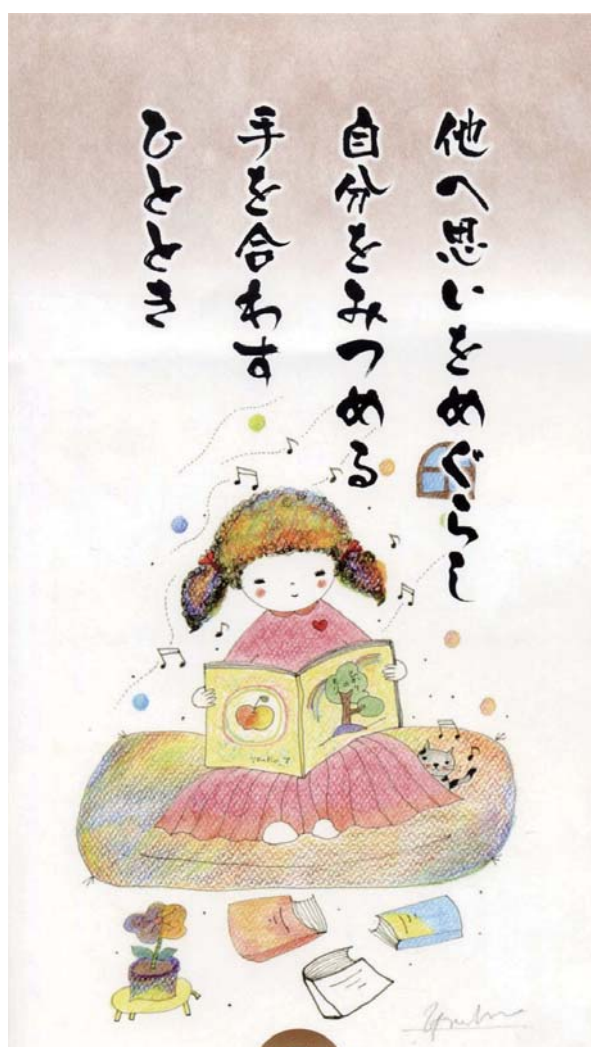 他へ思いをめぐらし
自分をみつめる
手を合わす
ひととき